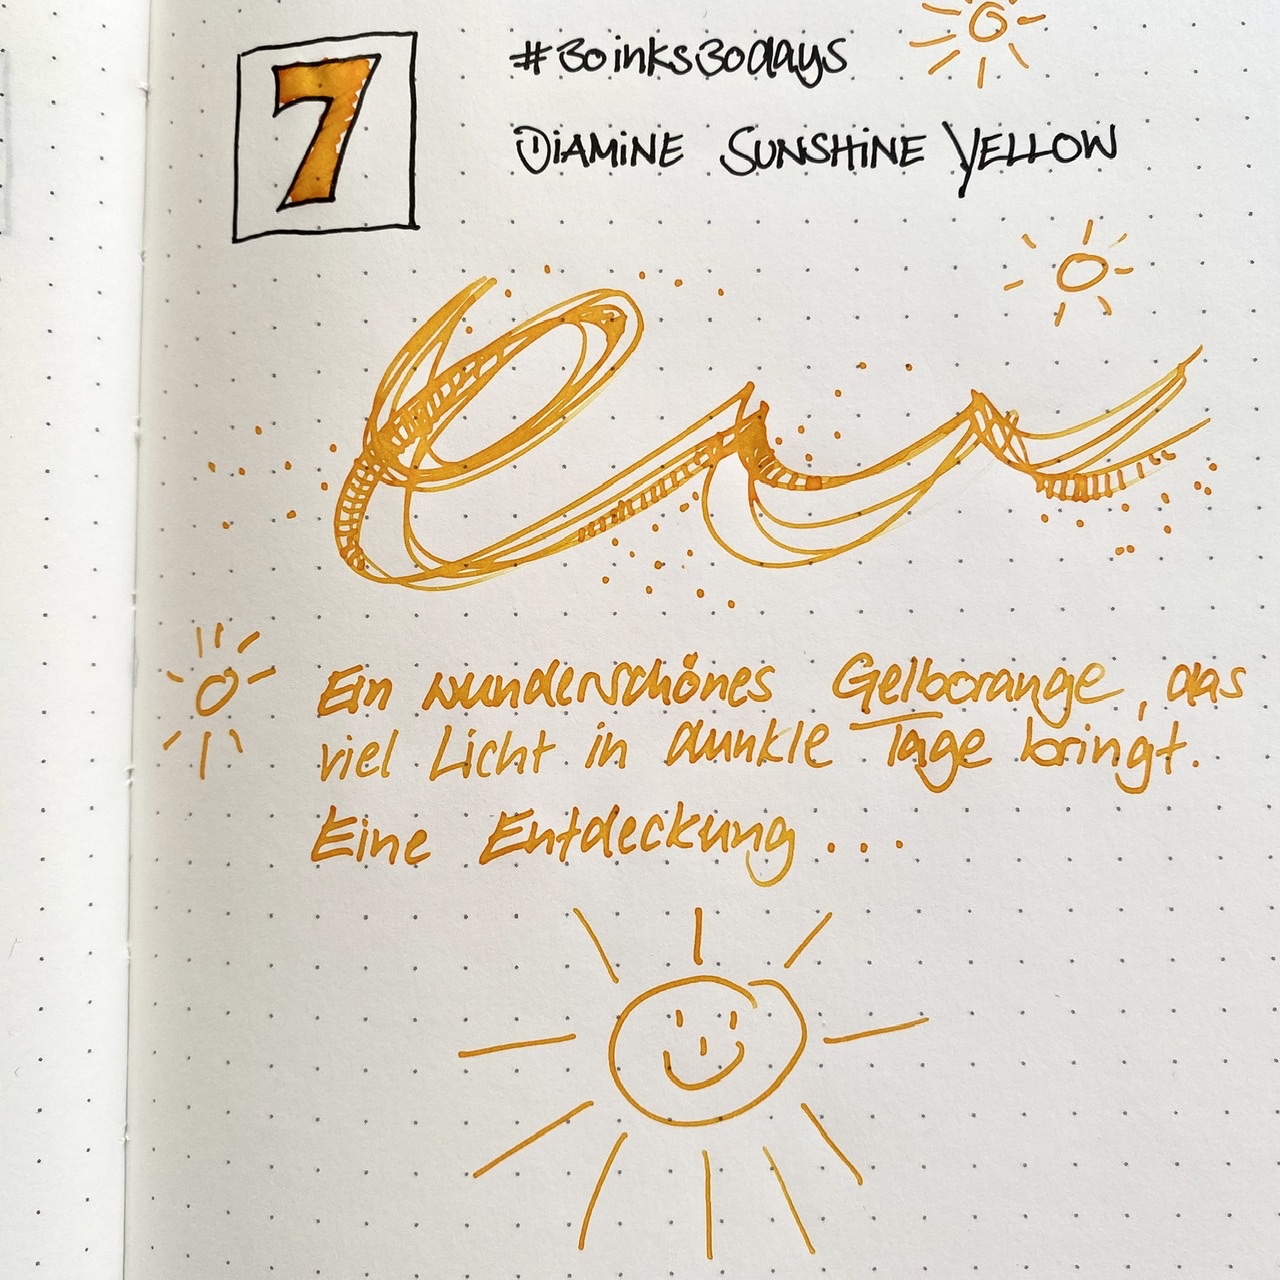 7
#30inks30days
DIAMINE SUNSHINE YELLOW
Ein wunderschönes Gelborange, das
viel Licht in dunkle Tage bringt.
Eine Entdeckung...